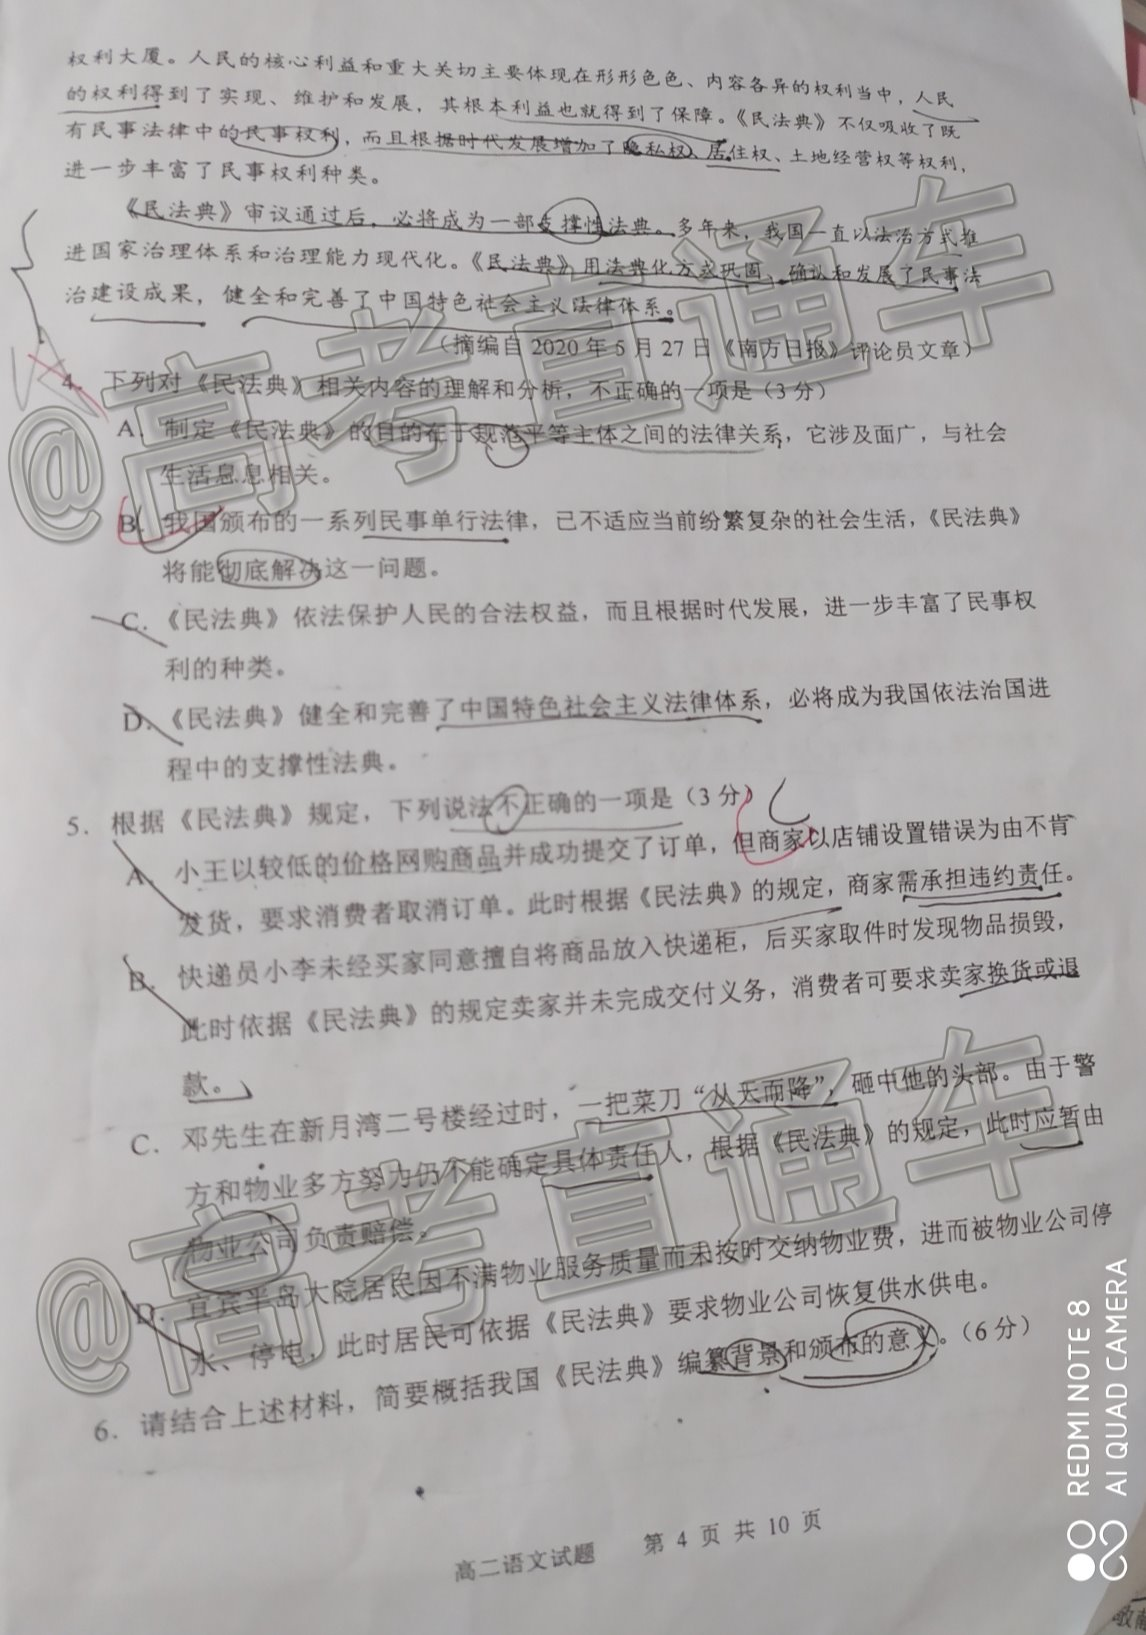 权利大厦。人民的核心利益和重大关切主要体现在形形色色、内容各异的权利当中，人民
的权利得到了实现、维护和发展，其根本利益也就得到了保障。《民法典》不仅吸收了既
有民事法律中的民事权利，而且根据时代发展增加了隐私权、居住权、土地经营权等权利，
进一步丰富了民事权利种类。
《民法典》审议通过后，必将成为一部支撑性法典。多年来，我国一直以法治方式推
进国家治理体系和治理能力现代化。《民法典》用法典化方式巩固、确认和发展了民事法
治建设成果，健全和完善了中国特色社会主义法律体系。
（摘编自 2020 年 5 月 27 日《南方日报》评论员文章）
4. 下列对《民法典》相关内容的理解和分析，不正确的一项是（3 分）
A. 制定《民法典》的目的在于规范平等主体之间的法律关系，它涉及面广，与社会
生活息息相关。
B. 我国颁布的一系列民事单行法律，已不适应当前纷繁复杂的社会生活，《民法典》
将能彻底解决这一问题。
C. 《民法典》依法保护人民的合法权益，而且根据时代发展，进一步丰富了民事权
利的种类。
D. 《民法典》健全和完善了中国特色社会主义法律体系，必将成为我国依法治国进
程中的支撑性法典。
5. 根据《民法典》规定，下列说法不正确的一项是（3 分）
A. 小王以较低的价格网购商品并成功提交了订单，但商家以店铺设置错误为由不肯
发货，要求消费者取消订单。此时根据《民法典》的规定，商家需承担违约责任。
B. 快递员小李未经买家同意擅自将商品放入快递柜，后买家取件时发现物品损毁，
此时依据《民法典》的规定卖家并未完成交付义务，消费者可要求卖家换货或退
款。
C. 邓先生在新月湾二号楼经过时，一把菜刀“从天而降”，砸中他的头部。由于警
方和物业多方努力仍不能确定具体责任人，根据《民法典》的规定，此时应暂由
物业公司负责赔偿。
D. 宜宾半岛大院居民因不满物业服务质量而未按时交纳物业费，进而被物业公司停
水、停电，此时居民可依据《民法典》要求物业公司恢复供水供电。
6. 请结合上述材料，简要概括我国《民法典》编纂背景和颁布的意义。（6 分）
高二语文试题 第 4 页 共 10 页
@高考直通车
@高考直通车
REDMI NOTE 8
AI QUAD CAMERA